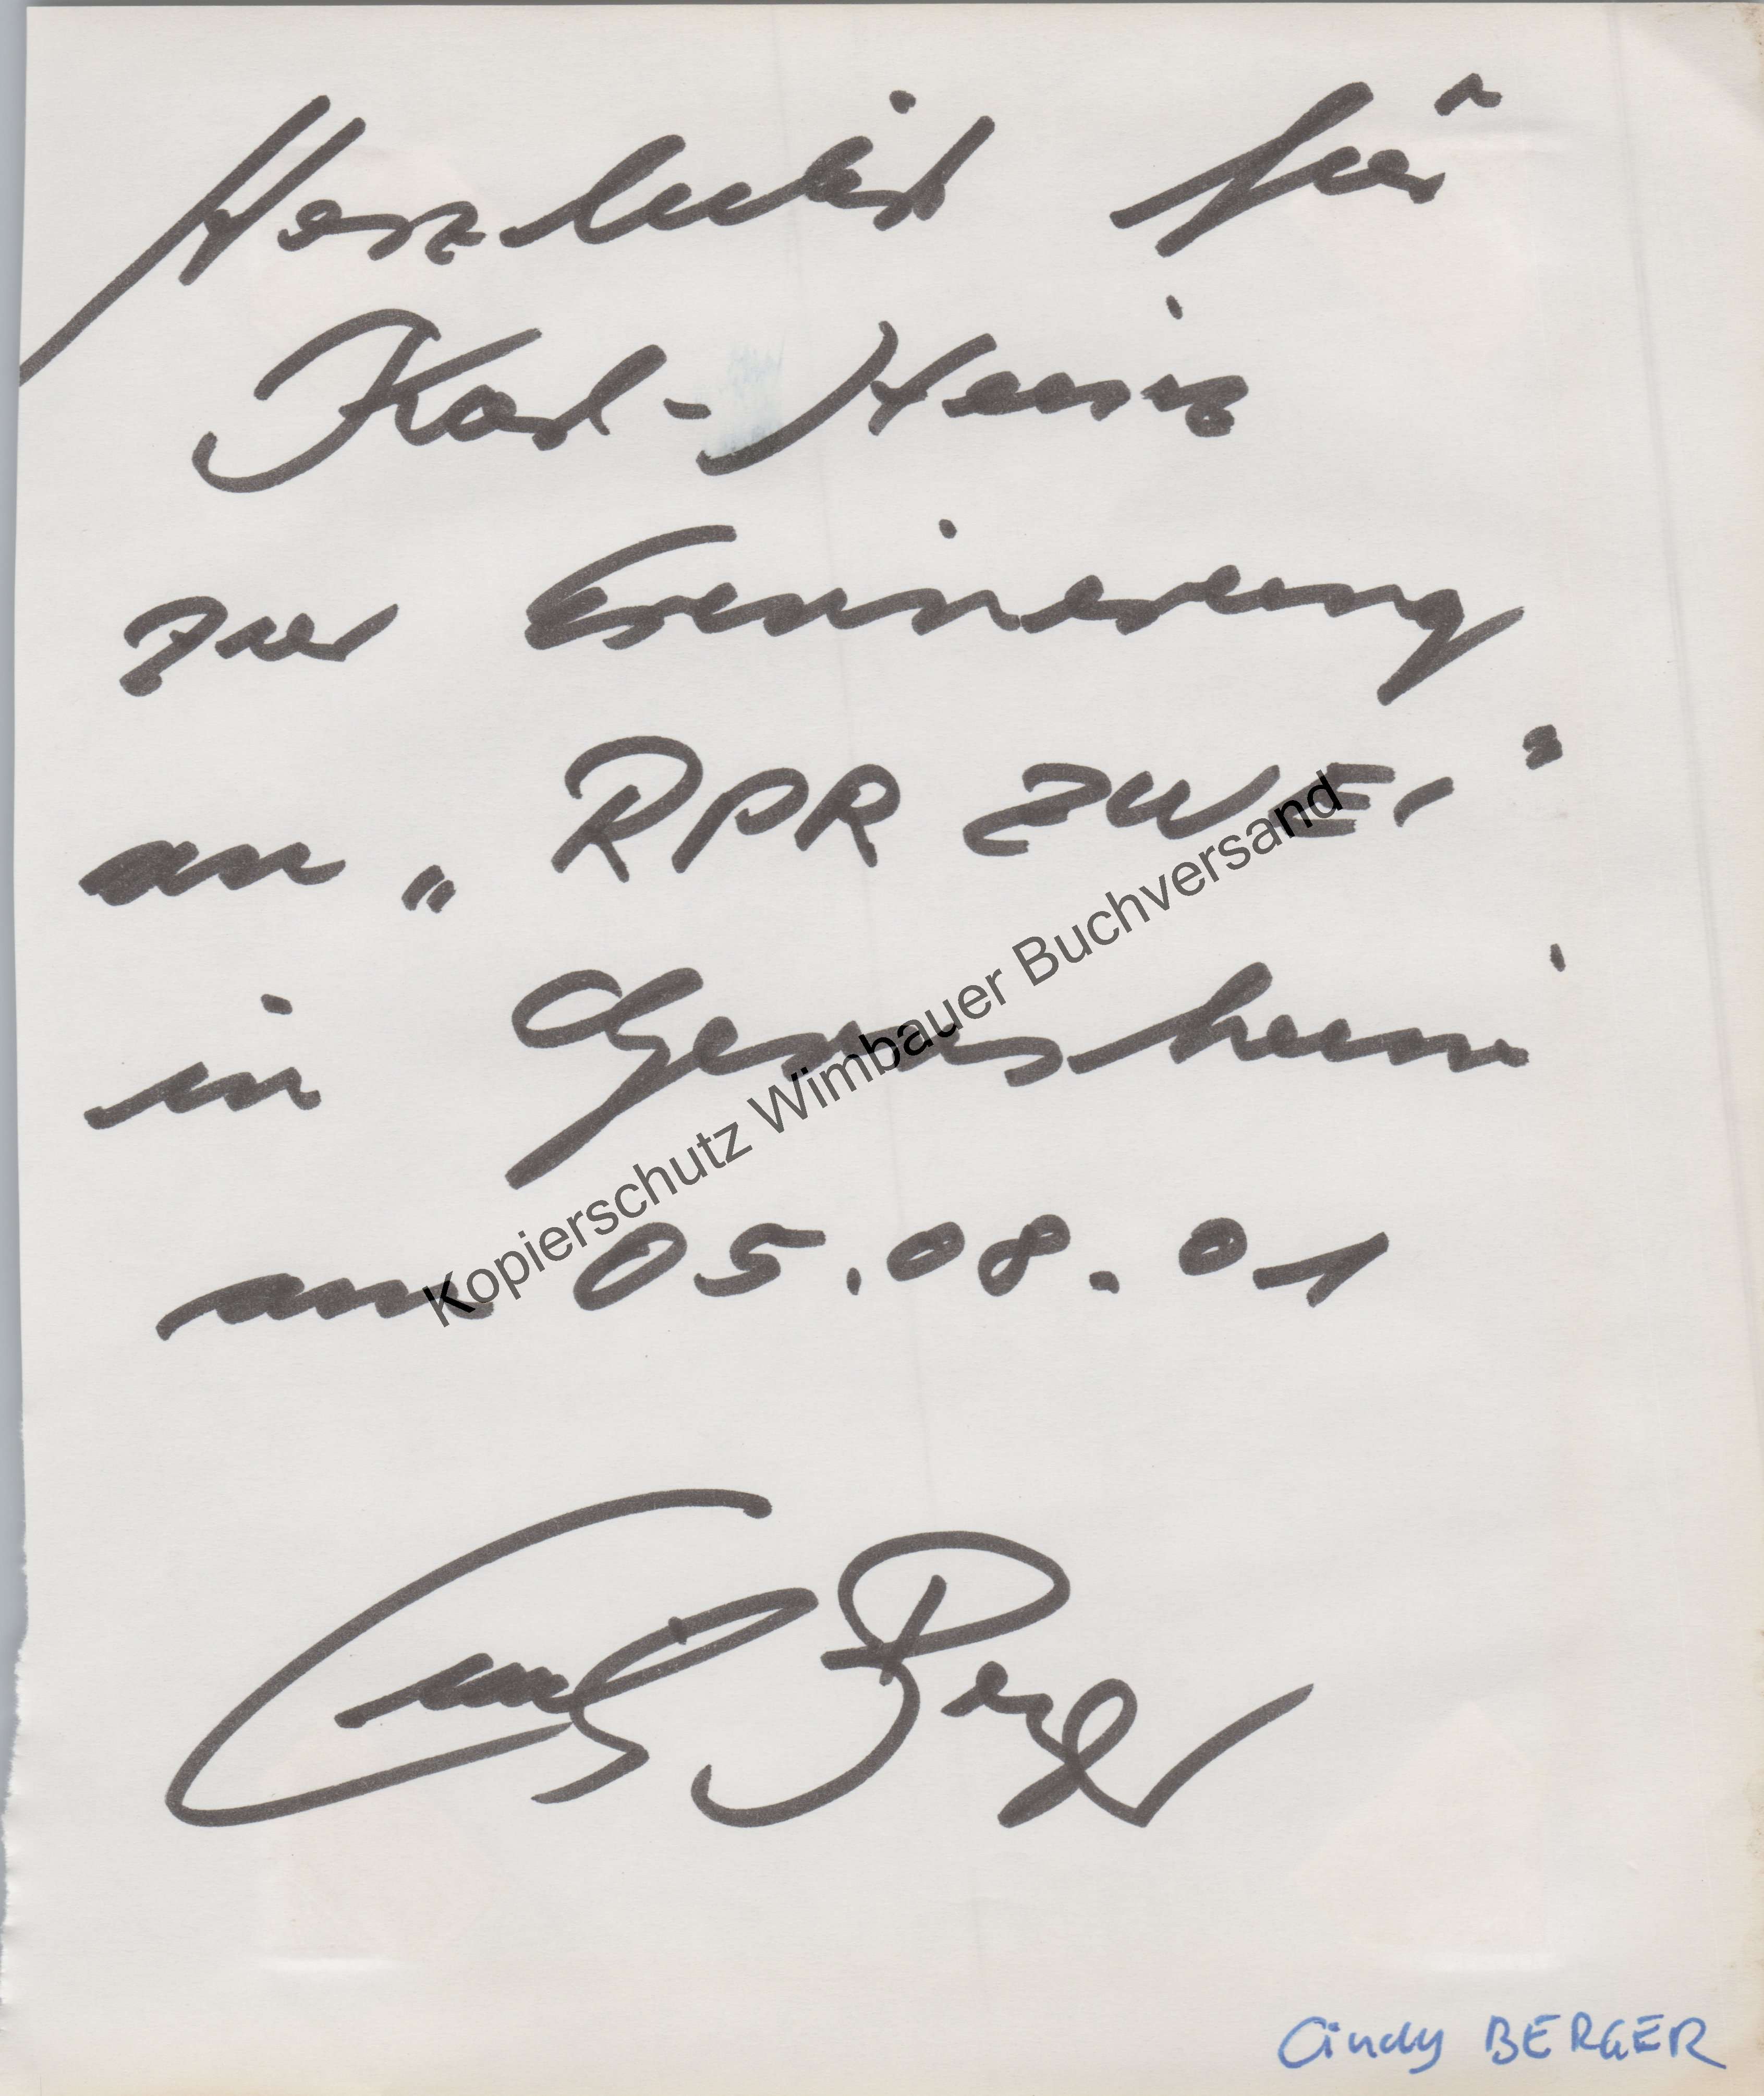 Herzlichst für
Karl-Heinz
zur Erinnerung
an „RPR ZWEI"
in Gernsheim
am 05.08.01
Kopierschutz Wimbauer Buchversand
Cindy Berger
Cindy BERGER